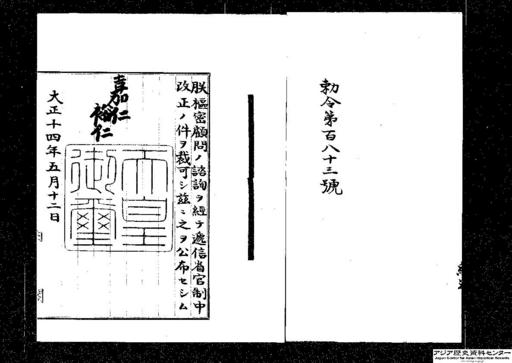 勅令第百八十三號
朕樞密顧問ノ諮詢ヲ經テ遞信省官制中
改正ノ件ヲ裁可シ茲ニ之ヲ公布セシム
嘉仁
裕仁
天皇
御璽
大正十四年五月十二日
内
閣
アジア歴史資料センター
Japan Center for Asian Historical Records